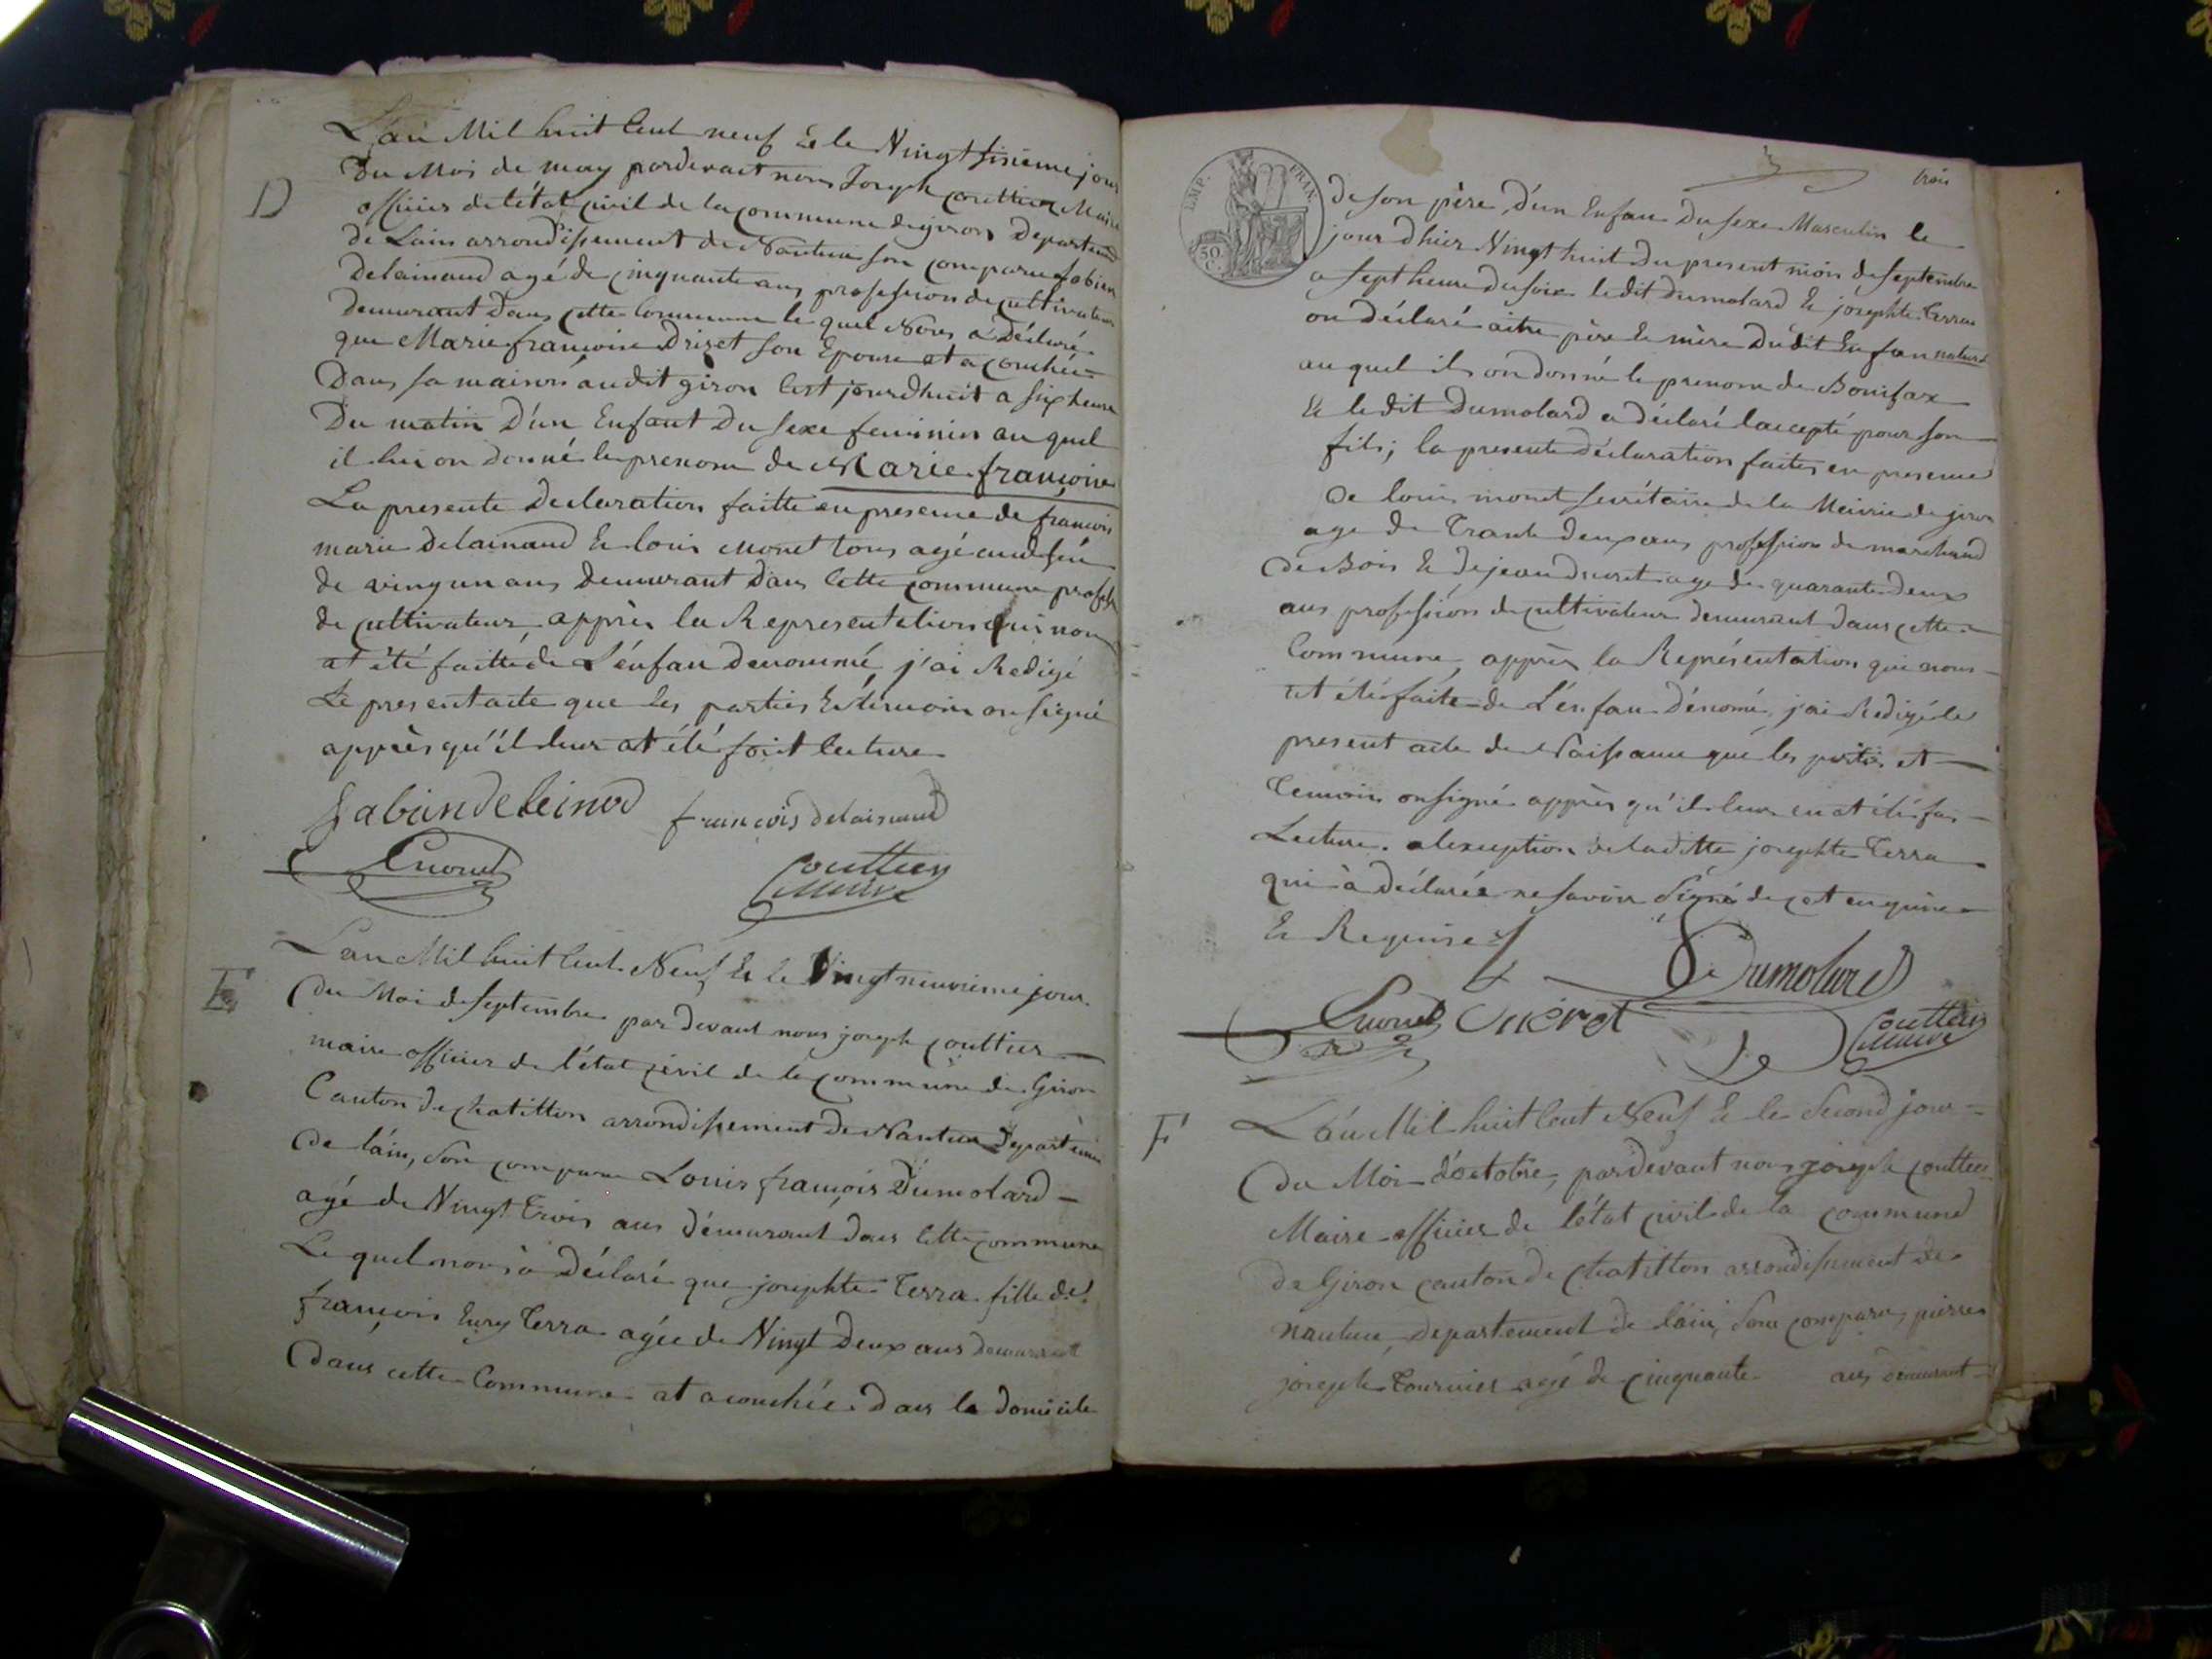 D
L'an Mil huit Cent neuf & le Vingt sisieme jour
Du Mois de may pardevant nous Joseph couttier Maire
officier de l'état civil de la commune de giron departement
de Lain arrondissement de Nantua son comparu fabien
Delainaud agé de cinquante ans profession de cultivateur
demeurant dans cette Commune le quel Nous a Déclaré
que Marie françoise Druet son Epouse at acouchée
Dans sa maison audit giron cest jourdhuit a six heure
Du matin D'un Enfant Du sexe feminin au quel
il lui on donné le prenom de Marie françoise
La presente Declaration faitte en presence de françois
marie Delainaud & loui Monet tous agé audesu
de vingun ans demeurant dans Cette commune profession
de cultivateur, apprès la Representation qui nou
at été faitte de L'énfan denommé, j'ai Redigé
Le present acte que les parties & témoin on signé
apprès qu'il leur at été fait lecture
fabiin deleinod françois delainaud
Monet Couttier
Maire
E
L'an Mil huit Cent Neuf & le Vingt neuvieme jour
Du Moi de septembre par devant nous joseph couttier
maire officier de l'état civil de la commune de Giron
Canton de chatillon arrondissement de Nantua Departement
de láin, Son comparu Louis françois Dumolard
agé de Vingt trois ans démeurant dans Cette commune
Le quel nous à Déclaré que josephte Terra fille de
françois Terra agée de Vingt Deux ans demeurant
Dans cette Commune at acouchée dans le domicile
3 trois
EMP. FRAN.
50 C.
de son père, d'un Enfan Du sexe Masculin le
jour d'hier Vingt huit du present moi de septembre
a sept heure du soir ledit dumolard & josephte Terra
on déclaré aitre père & mère Dudit Enfan naturel
au quel ils on donné le prenom de Bonifax
& le dit Dumolard a déclaré l'accepté pour son
fils; la presente déclaration faites en presence
de louis monet secrétaire de la Mairie de giron
age de Trante deux ans profession de marchand
de Bois & de jean druet age de quarante deux
ans profession de cultivateur demeurant dans cette
Commune, apprès la Représentation qui nous
at été faite de L'énfan dénomé, j'ai Redigé le
present acte de Naissance que les partis et
Temoin on signé apprès qu'il leur en at été fai
Lecture. a lexception de laditte josephte Terra
qui à déclarée ne savoir Signé de cet enquise
& Requise
Dumolard
Monet Couttier
Maire
F
L'án Mil huit Cent Neuf & le Second jour
Du Moi d'octobre, pardevant nous joseph couttier
Maire officier de l'état civil de la commune
de Giron canton de chatillon arrondissement de
nantua, departement de láin, Son comparu, pierre
joseph Tournier agé de cinquante ans demeurant